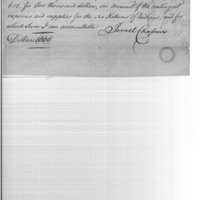 for five thousand dollars, on account of the contingent
expenses and supplies for the six Nations of Indians, and for
which sum I am accountable
Israel Chapin
D. 5 Mars